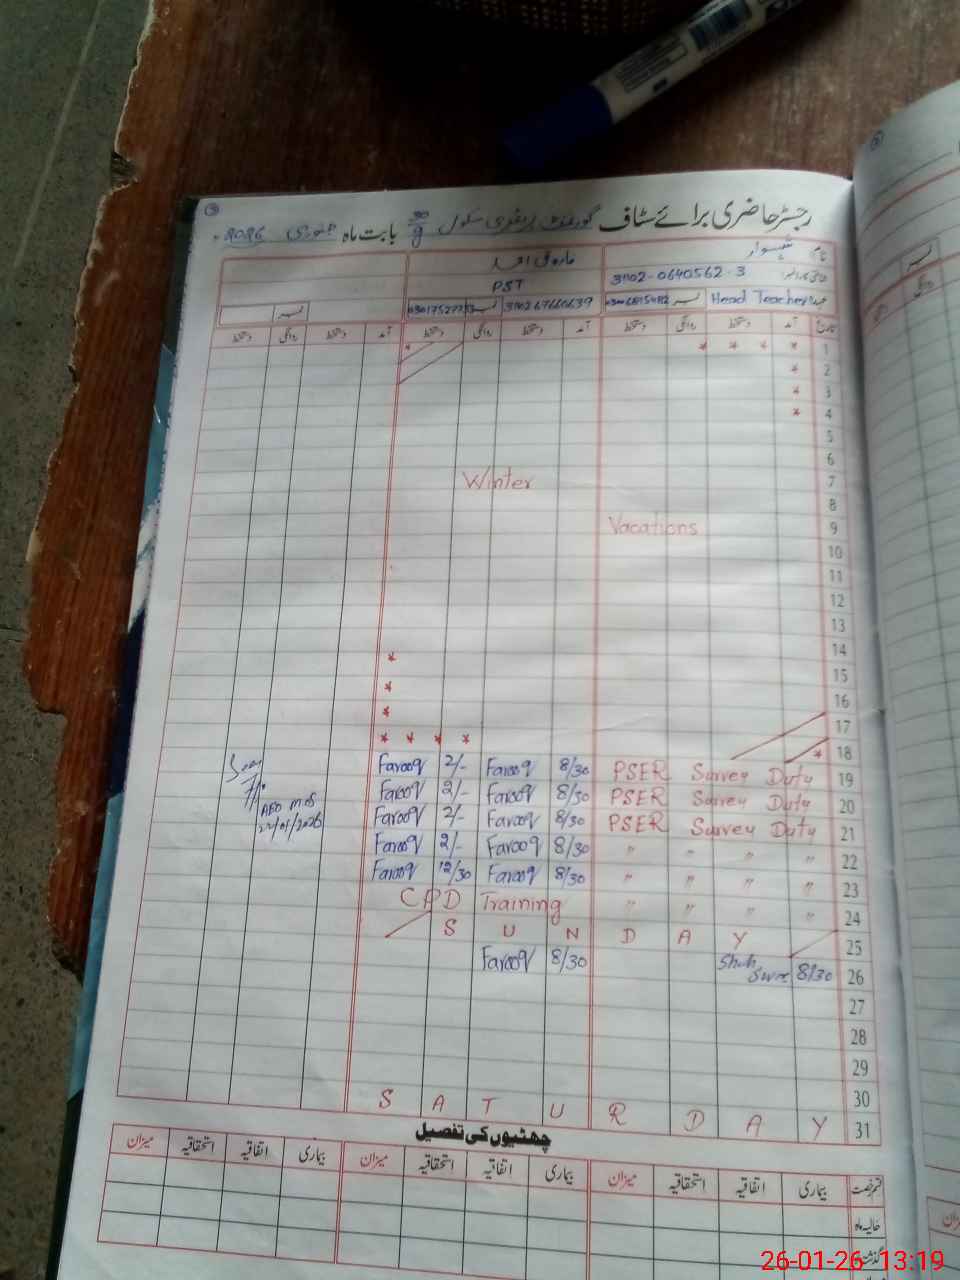 رجسٹر حاضری برائے سٹاف گورنمنٹ پرائمری سکول بابت ماہ جنوری 2026
نام شہسوار
3102-0640562-3
PST
Head Teacher نمبر
3110267660639 نمبر
نمبر
تاریخ آمد دستخط روانگی دستخط آمد روانگی دستخط آمد دستخط روانگی دستخط
1 * * * * *
2 *
3 *
4 *
5
6
7 Winter
8
9 Vacations
10
11
12
13
14 *
15 *
16 *
17 * * * *
18 *
19 PSER Survey Duty Farooq 8/30 Farooq 2/-
20 PSER Survey Duty Farooq 8/30 Farooq 2/-
21 PSER Survey Duty Farooq 8/30 Farooq 2/-
22 " " " " Farooq 8/30 Farooq 2/-
23 " " " " Farooq 8/30 Farooq 12/30
24 " " " " CPD Training
25 S U N D A Y
26 8/30 Farooq 8/30
27
28
29
30
31 S A T U R D A Y
چھٹیوں کی تفصیل
قسم رخصت بیماری اتفاقیہ استحقاقیہ میزان بیماری اتفاقیہ استحقاقیہ میزان بیماری اتفاقیہ استحقاقیہ میزان
حالیہ ماہ
میزان
26-01-26 13:19